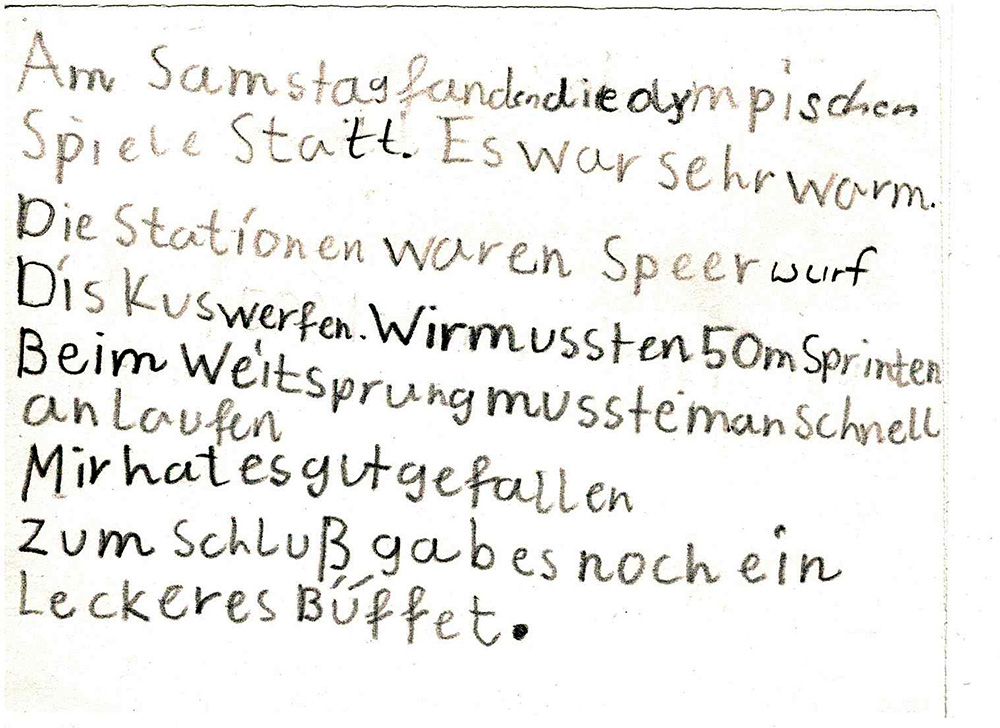 Am Samstag fanden die olympischen
Spiele Statt. Es war sehr warm.
Die Stationen waren Speerwurf
Diskuswerfen. Wir mussten 50m Sprinten
Beim Weitsprung musste man schnell
anlaufen
Mir hat es gut gefallen
Zum Schluß gab es noch ein
Leckeres Büffet.